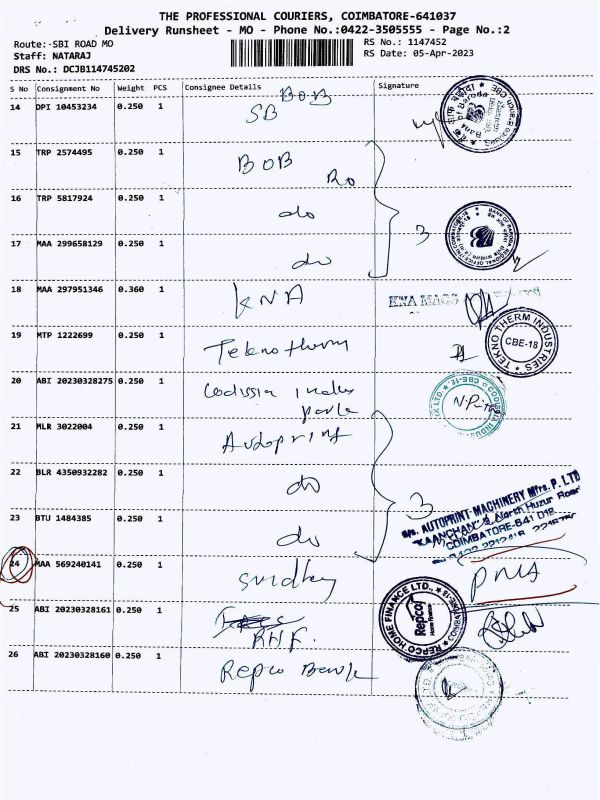 THE PROFESSIONAL COURIERS, COIMBATORE-641037
Delivery Runsheet - MO - Phone No.:0422-3505555 - Page No.:2
Route:-SBI ROAD MO
RS No.: 1147452
Staff: NATARAJ
RS Date: 05-Apr-2023
DRS No.: DCJB114745202
S No Consignment No Weight PCS Consignee Details Signature
BOB
14 DPI 10453234 0.250 1 SB
Bank of Baroda
15 TRP 2574495 0.250 1 BOB
Ro
16 TRP 5817924 0.250 1 do
3
17 MAA 299658129 0.250 1 do
18 MAA 297951346 0.360 1 KNA
KNA MAGS
19 MTP 1222699 0.250 1 Teknotherm
TEKNO THERM INDUSTRIES
CBE-18
20 ABI 20230328275 0.250 1 Codissia
park
21 MLR 3022004 0.250 1 Autoprint
22 BLR 4350932282 0.250 1 do
3
M/s. AUTOPRINT MACHINERY Mfrs. P. LTD
"KAANCHAN" North Huzur Road
COIMBATORE-641 018
23 BTU 1484385 0.250 1 do
24 MAA 569240141 0.250 1
25 ABI 20230328161 0.250 1 RHF.
REPCO HOME FINANCE LTD.,
Repco
Home Finance
26 ABI 20230328160 0.250 1 Repco Bank